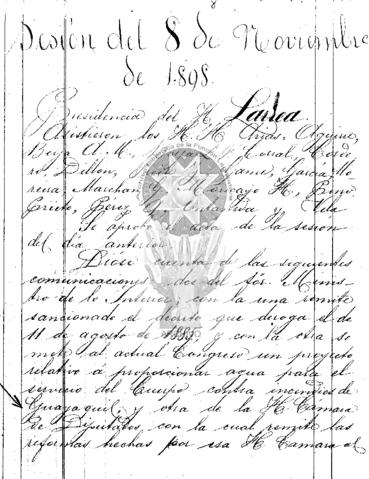 Sesión del 8 de Noviembre
de 1898.
Presidencia del H. Larrea
Asistieron los H. H. Arias, Aguirre,
Borja A. M., Corral,
Dillon, García Mo
Marchán, Moncayo H., Pino
Prieto, Pérez Vela
Se aprobó el acta de la sesión
del día anterior.
Dióse cuenta de las siguientes
comunicaciones: dos del Sór. Minis-
tro de lo Interior; con la una remite
sancionado el decreto que deroga el de
11 de agosto de y con la otra so
mete al actual Congreso un proyecto
relativo á proporcionar agua para el
servicio del Cuerpo contra incendios de
Guayaquil; y otra de la H. Cámara
de Diputados con la cual remite las
reformas hechas por esa H. Cámara al